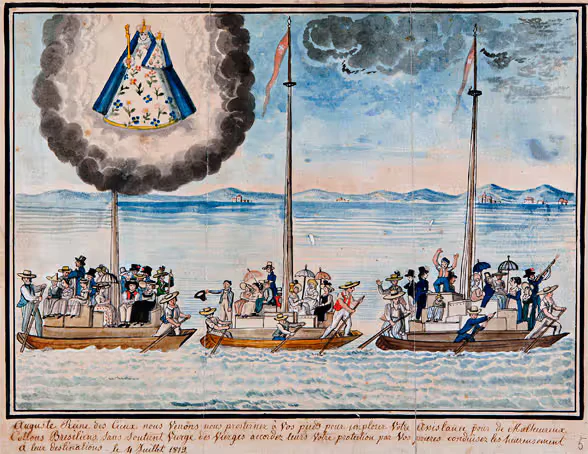 Auguste Reine des Cieux nous venons nous prosterner à Vos pieds pour implorer Votre Assistance pour de Malheureux
Collons Bresiliens sans soutient Vierge des Vierges accordez leurs Votre protection par Vos prieres conduisez les heureusement
à leur destinations. le 4 Juillet 1819.
5